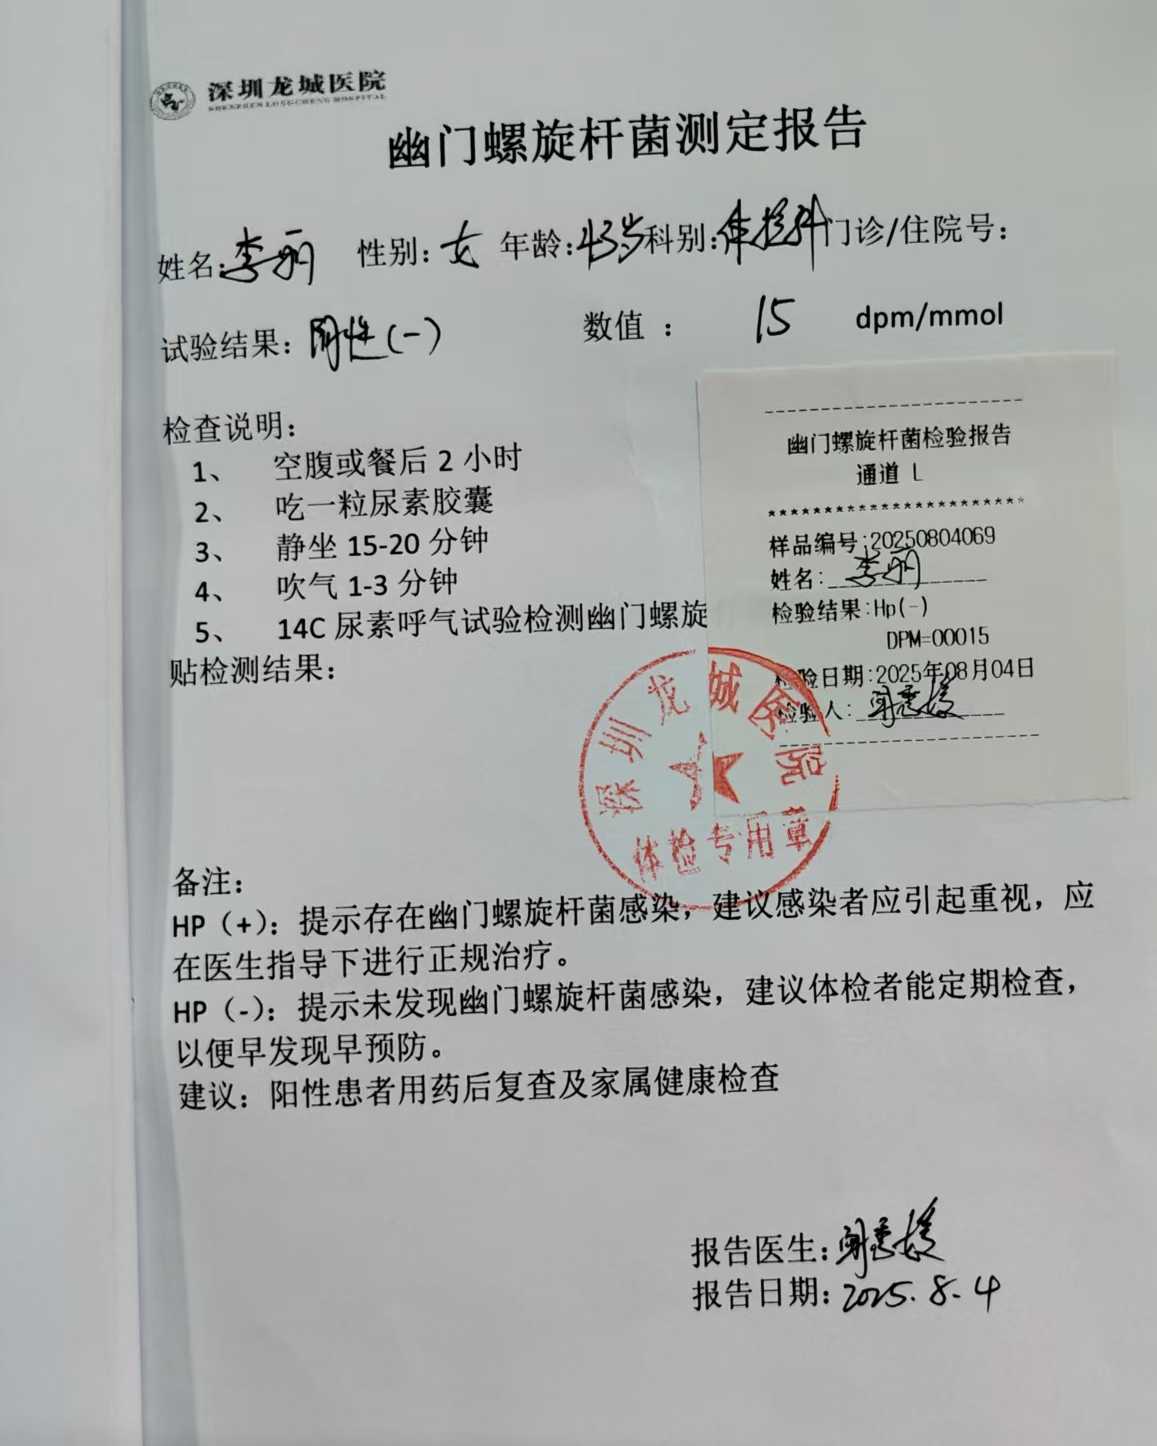 深圳龙城医院
SHENZHEN LONGCHENG HOSPITAL
幽门螺旋杆菌测定报告
姓名:李丽 性别:女 年龄:43岁 科别:体检科 门诊/住院号:
试验结果: 阴性(-) 数值 : 15 dpm/mmol
检查说明:
1、 空腹或餐后 2 小时
2、 吃一粒尿素胶囊
3、 静坐 15-20 分钟
4、 吹气 1-3 分钟
5、 14C 尿素呼气试验检测幽门螺旋
贴检测结果:
幽门螺旋杆菌检验报告
通道 L
************************
样品编号:20250804069
姓名:李丽
检验结果:Hp(-)
DPM=00015
检验日期:2025年08月04日
检验人:
深圳龙城医院
体检专用章
备注:
HP（+）：提示存在幽门螺旋杆菌感染，建议感染者应引起重视，应
在医生指导下进行正规治疗。
HP（-）：提示未发现幽门螺旋杆菌感染，建议体检者能定期检查，
以便早发现早预防。
建议：阳性患者用药后复查及家属健康检查
报告医生:
报告日期: 2025.8.4